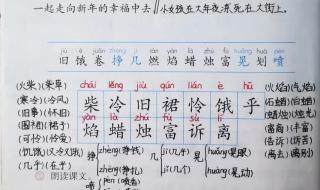 一起走向新年的幸福中去‖小女孩在大年夜冻死在大街上。
jiù è juǎn zhèng jǐ rán yàn là zhú fù huǎng huá pēn
旧饿卷挣几燃焰蜡烛富晃划喷
(火柴)(柴草) chái lěng jiù qún lián è hū (火焰)(气焰)
(寒冷)(冷风) 柴冷旧裙怜饿乎 (石蜡)(白蜡)
(旧事)(怀旧) yàn là zhú fù sù lí (蜡烛)(烛光)
(围裙)(裙子) 焰蜡烛富诉离 (富商)(丰富)
(可怜)(怜爱) (告诉)(诉苦)
(饥饿)(又冷又饿) 挣 zhèng(挣钱) zhēng(挣扎) 几 jǐ(几个) jī(几乎) 晃 huǎng(晃眼) huàng(晃动) (离去)(离别)
(几乎)(在乎)
朗读课文。 喷 pēn(喷